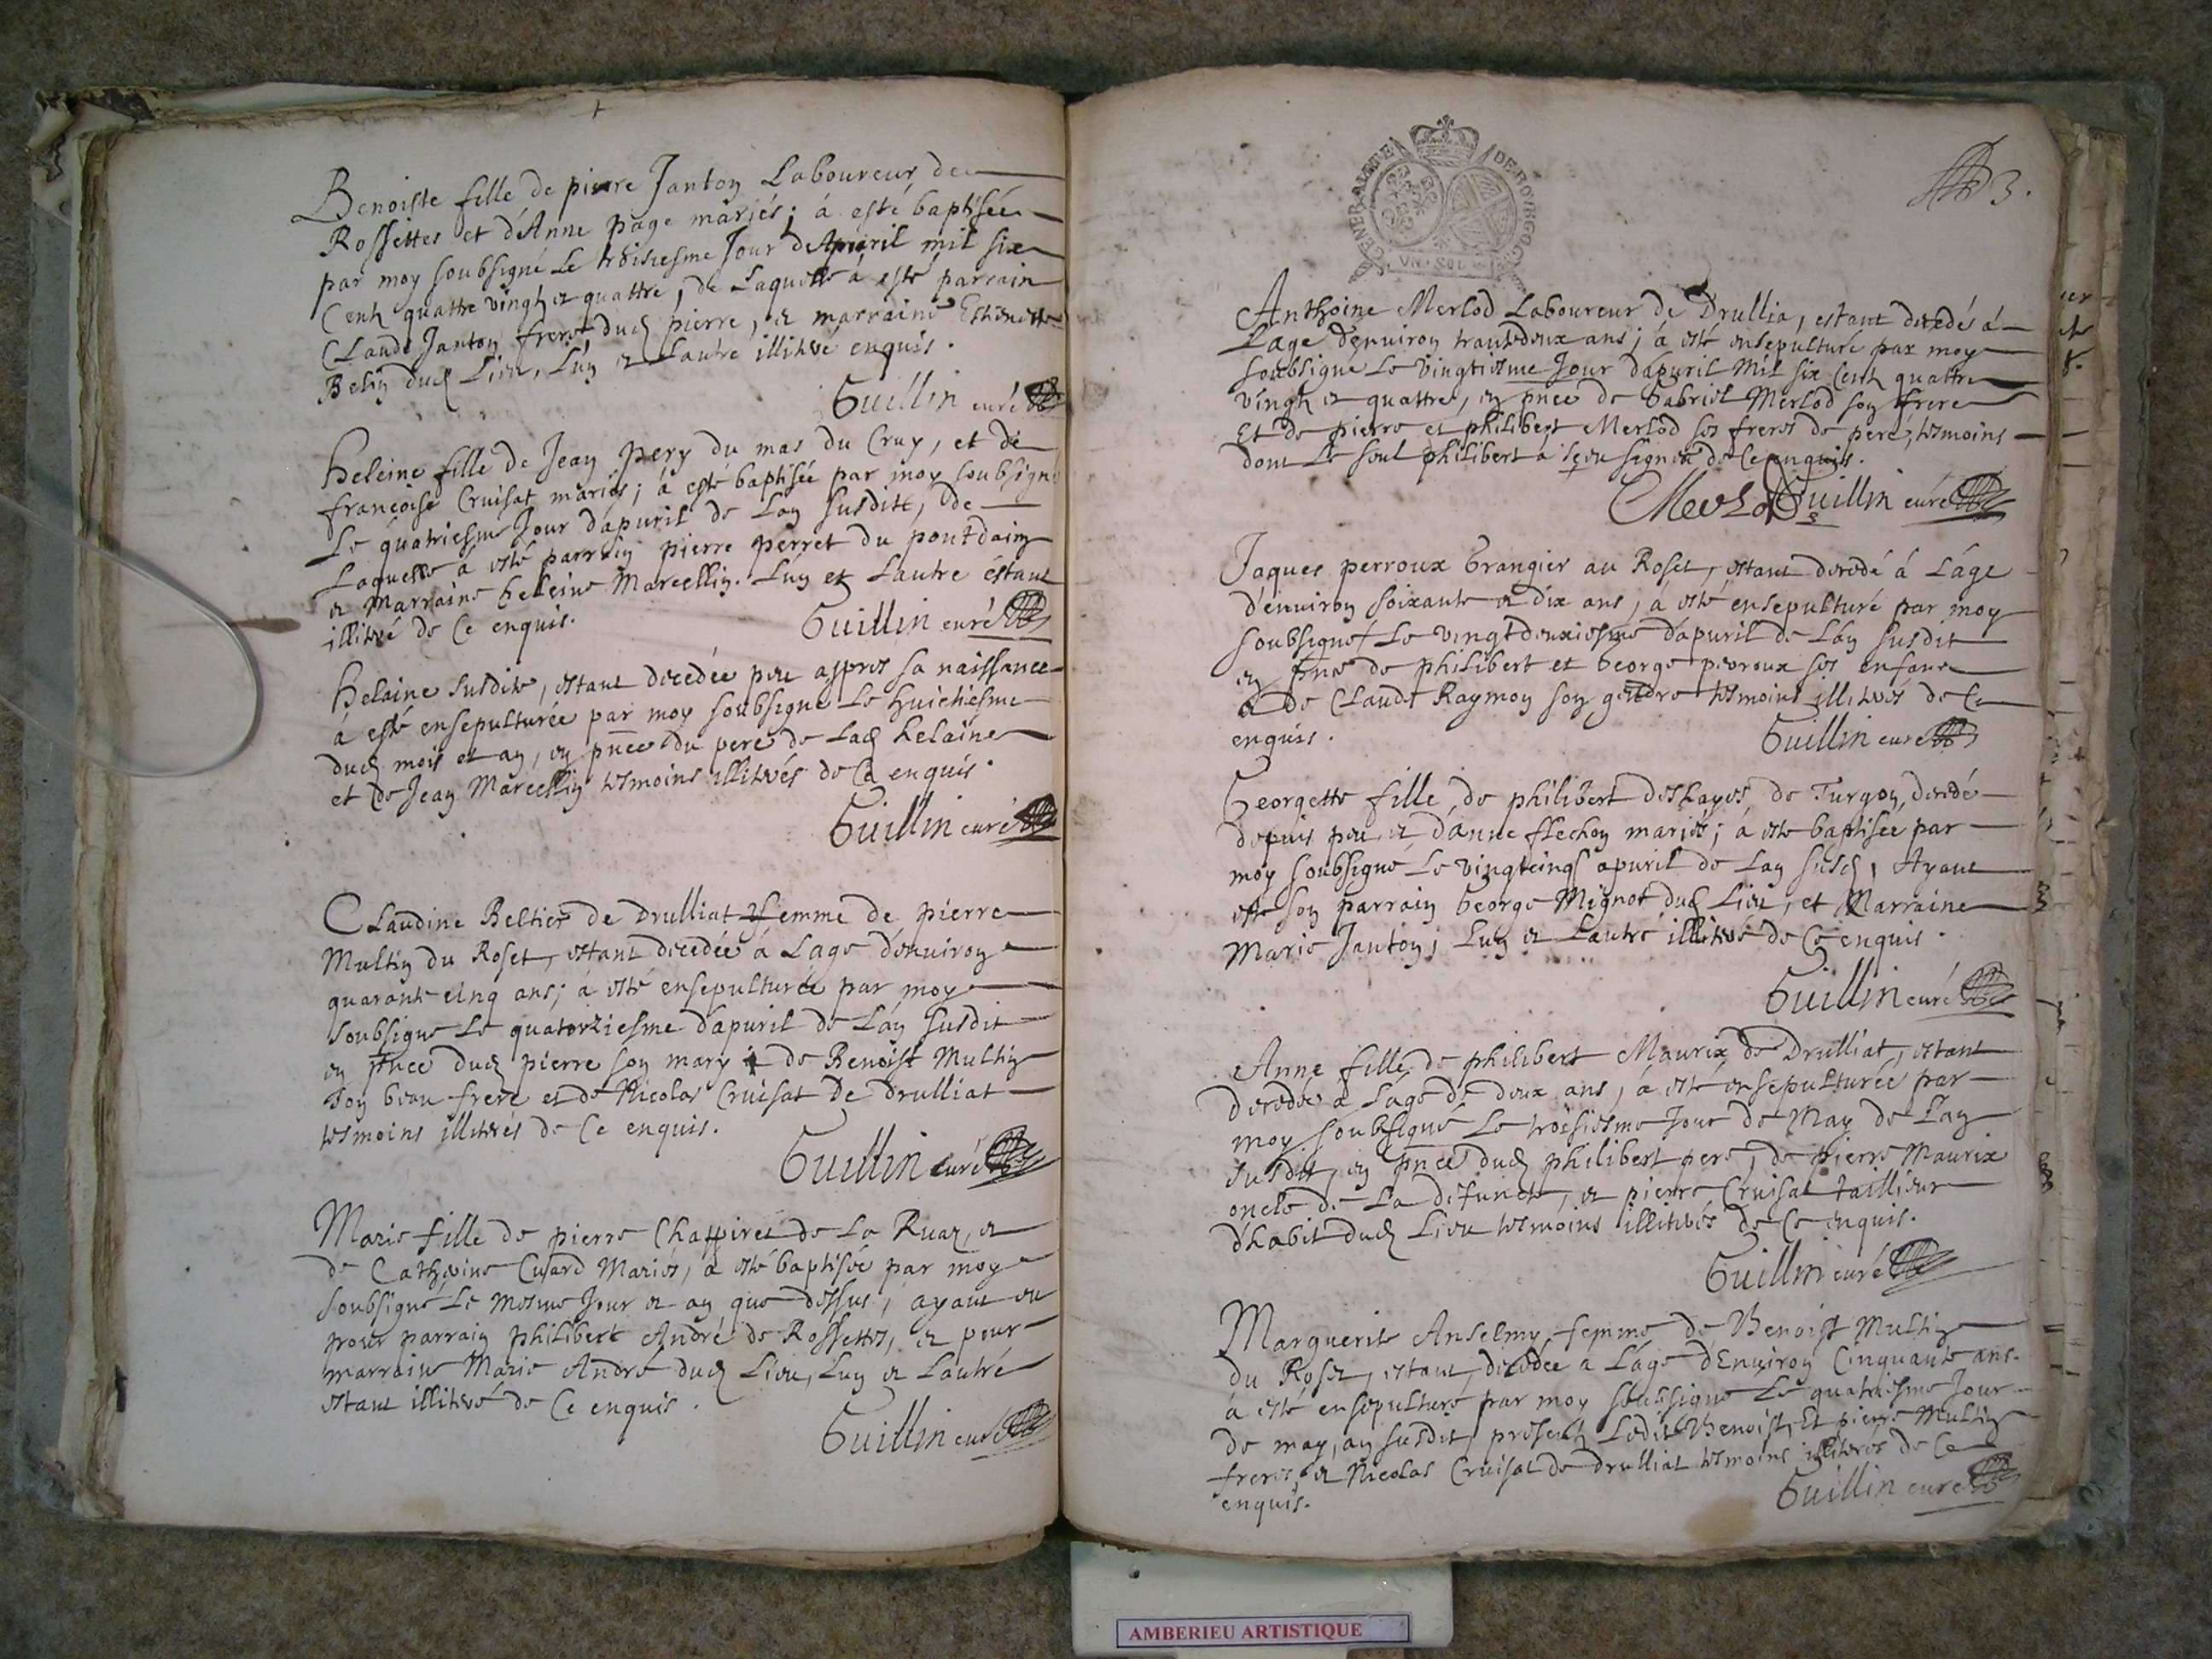 Benoiste fille de pierre Janton Laboureur de
Rossettes et d'Anne page mariés; à esté baptisée
par moy soubsigné Le troisiesme Jour d'Apuril mil six
Cent quattre vingt et quattre, de Laquelle à esté parrain
Claude Janton frere dud pierre, et marraine Estiennette
Belin dud Lieu, Luy et Lautre illiteré enquis.
Guillin curé
heleine fille de Jean pery du mas du Cruy, et de
françoise Cruisat mariés; à esté baptisée par moy soubsigné
Le quatriesme Jour d'apuril de Lan susditt, de
Laquelle à esté parrain pierre perret du pontdain
et Marraine heleine Marcellin. Luy et Lautre éstant
illiteré de Ce enquis.
Guillin curé
helaine susdite, estant decedée peu appres sa naissance
à esté ensepulturée par moy soubsigné Le huictiesme
dud mois et an, en pnce du pere de Lad helaine
et de Jean Marcellin tesmoins illiterés de Ce enquis.
Guillin curé
Claudine Beltier de Drulliat femme de pierre
Multin du Roset, estant decedée à Lage d'enuiron
quarante cinq ans; à esté ensepulturée par moy
soubsigné Le quatorziesme d'apuril de Lan susdit
en pnce dud pierre son mary et de Benoist Multin
son beau frere et de Nicolas Cruisat De Drulliat
tesmoins illiterés de Ce enquis.
Guillin curé
Marie fille de pierre Chappiret de La Ruaz, et
de Catherine Cusard Mariés, à esté baptisée par moy
soubsigné Le Mesme Jour et an que dessus, ayant eu
pour parrain philibert André de Rossettes, et pour
marraine Marie André dud Lieu, Luy et Lautre
estant illiteré de Ce enquis.
Guillin curé
GENERALITE DE BOVRGOG
VN SOL
3.
Anthoine Merlod Laboureur de Drullia, estant decedé à
Lage d'enuiron trantedeux ans; à esté ensepulturé par moy
soubsigné Le vingtiesme Jour d'apuril Mil six Cent quattre
vingt et quattre, en pnce de Gabriel Merlod son frere
Et de pierre et philibert Merlod ses freres de pere, tesmoins
dont Le seul philibert à sceu signer de Ce enquis.
Merlod Guillin curé
Jaques perroux Grangier au Roset, estant decedé à Lâge
d'enuiron soixante et dix ans, à esté ensepulturé par moy
soubsigné Le vingtdeuxiesme d'apuril de Lan susdit
en pnce de philibert et George perroux ses enfans
et de Claude Raymon son gendre tesmoins illiterés de Ce
enquis.
Guillin curé
Georgette fille de philibert deshayes de Turgon, decedé
depuis peu et d'anne flechon mariés; à esté baptisée par
moy soubsigné Le vingtcinq apuril de Lan susd, Ayant
esté son parrain George Mignot dud Lieu, et Marraine
Marie Janton; Luy et Lautre illiteré de Ce enquis.
Guillin curé
Anne fille de philibert Maurix de Drulliat, estant
decedée à Lâge de deux ans, à esté ensepulturée par
moy soubsigné Le troisiesme Jour de May de Lan
susdit, en pnce dud philibert pere, de pierre Maurix
oncle de La defuncte, et pierre Cruisat tailleur
d'habit dud Lieu tesmoins illiterés de Ce enquis.
Guillin curé
Marguerite Anselmy femme de Benoist Multin
du Roset, estant decedée à Lâge d'Enuiron Cinquante ans.
à esté ensepulturé par moy soubsigné Le quatriesme Jour
de may, an susdit, present Ledit Benoist, Et pierre Multin
freres, et Nicolas Cruisat de drulliat tesmoins illiterés de Ce
enquis.
Guillin curé
AMBERIEU ARTISTIQUE